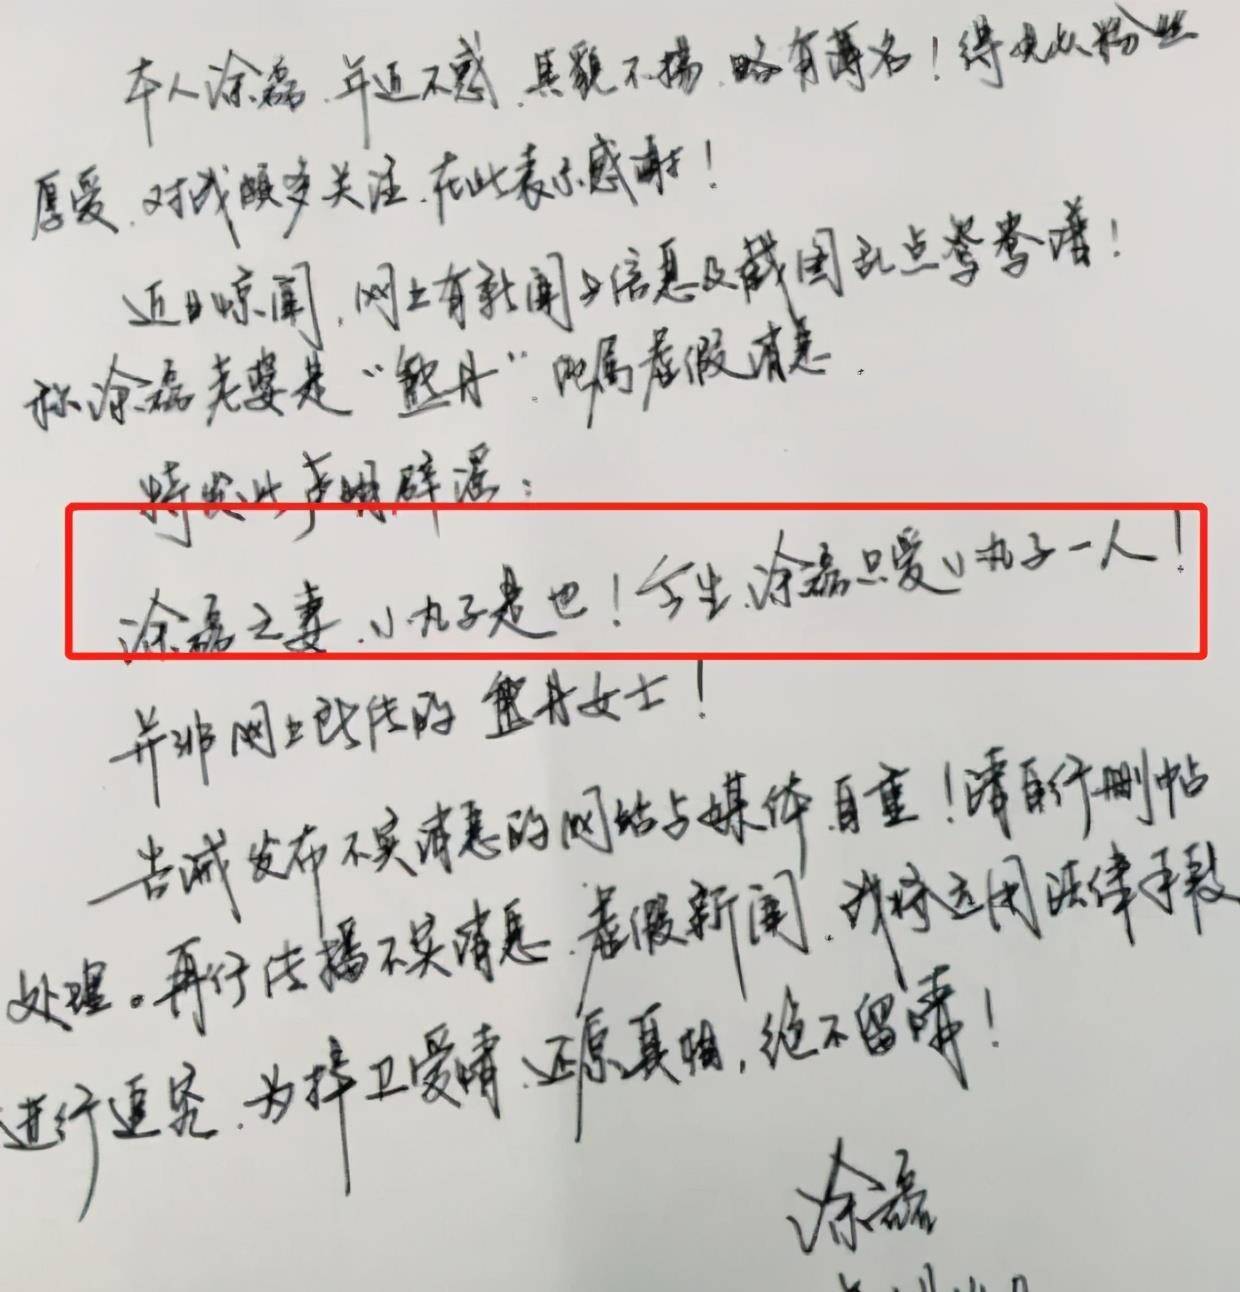 本人涂磊、年近不惑、其貌不揚、略有薄名！得光众粉丝
厚爱、对我颇多关注、在此表示感谢！
近日惊闻，网上有新闻与信息及截图乱点鸳鸯谱！
称涂磊老婆是“熊丹”此属虚假消息.
特发此声明辟谣：
涂磊之妻、小丸子是也！今生、涂磊只爱小丸子一人！
并非网上所传的熊丹女士！
告诫发布不实消息的网站与媒体自重！请自行删帖
处理。再行传播不实消息、虚假新闻、我将运用法律手段
进行追究、为捍卫爱情、还原真相，绝不留情！
涂磊